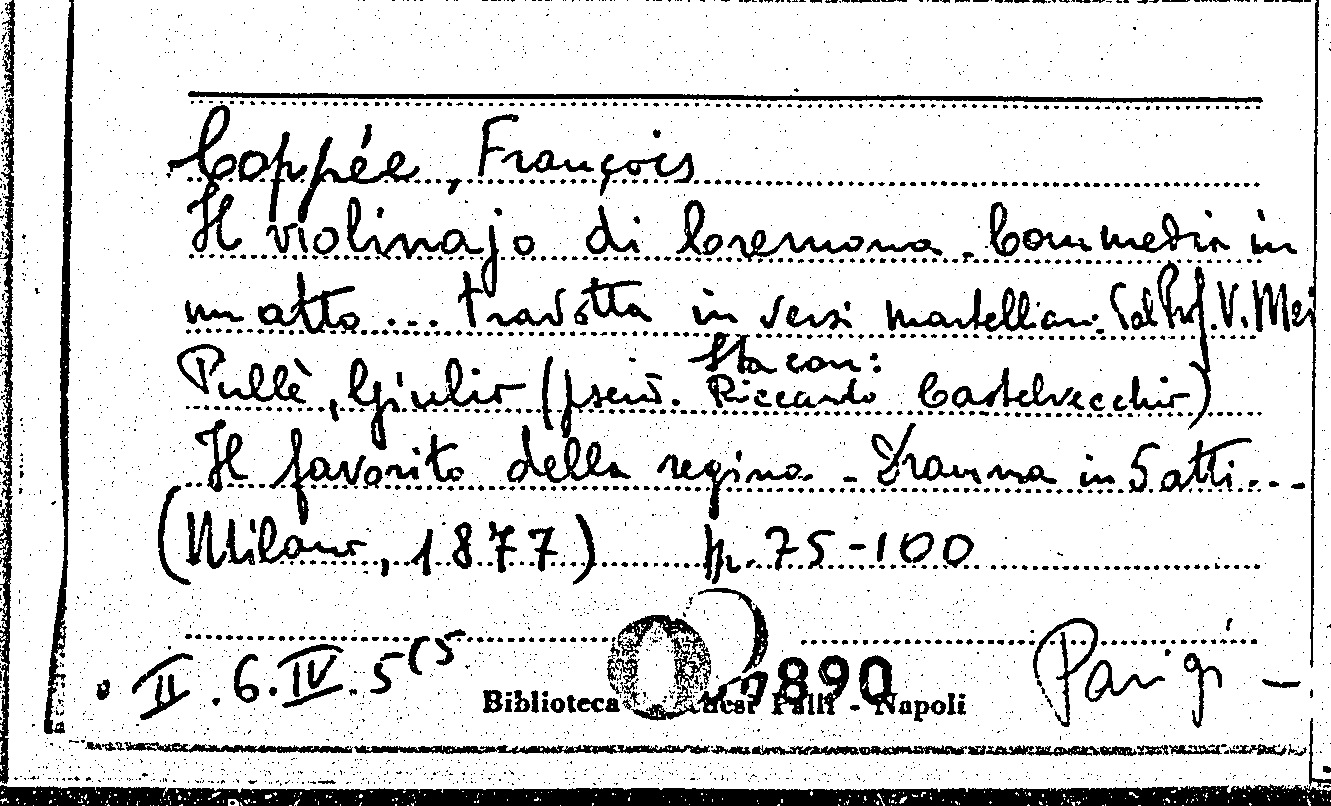 Coppée, François
Il violinajo di Cremona. Commedia in
un atto... tradotta in versi martelliani dal Prof. V. Mei
Sta con:
Pullè, Giulio (pseud. Riccardo Castelvecchio)
Il favorito della regina - Dramma in 5 atti...
(Milano, 1877) pp. 75-100
II.6.IV.5(5
890
Parigi -
Biblioteca Palli - Napoli